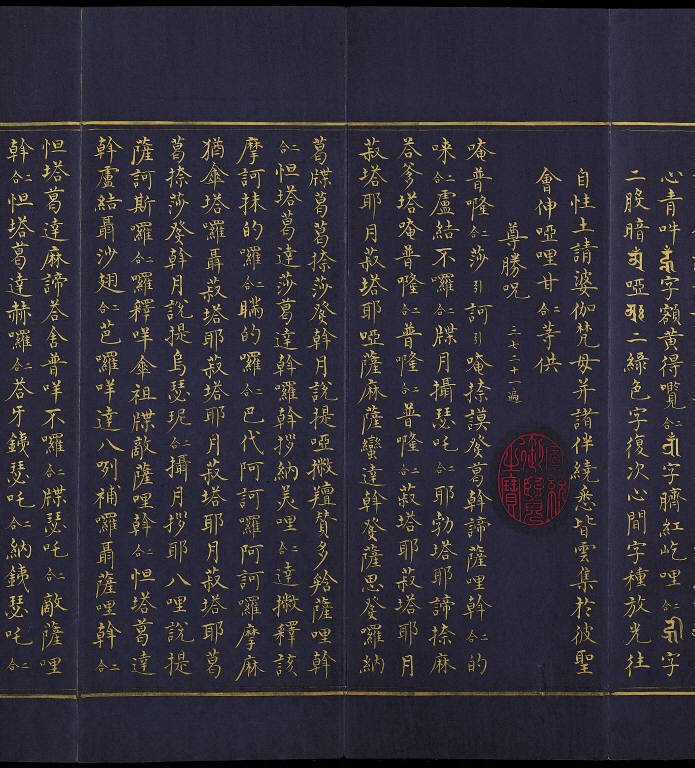 心青吽字額黃得囕二合字臍紅屹哩二合字
二股暗啞二綠色字復次心間字種放光往
自性土請婆伽梵母并諸伴繞悉皆雲集於彼聖
會伸啞哩甘二合等供
尊勝呪 三七二十一遍
唵普隆二合莎引訶引唵捺謨癹葛斡諦薩哩斡二合的
唻二合盧結不囉二合牒月攝瑟吒二合耶勃塔耶諦捺麻
答爹塔唵普隆二合普隆二合普隆二合菽塔耶菽塔耶月
菽塔耶月菽塔耶啞薩麻薩蠻達斡癹薩思癹囉納
葛牒葛葛捺莎癹斡月說提啞撇羶贊多捨薩哩斡
二合怛塔葛達莎葛達斡囉斡拶納美哩二合達撇釋該
摩訶抹的囉二合瞞的囉二合巴代阿訶囉阿訶囉摩麻
猶傘塔囉聶菽塔耶菽塔耶月菽塔耶月菽塔耶葛
葛捺莎癹斡月說提烏瑟玭二合攝月拶耶八哩說提
薩訶斯囉二合囉釋咩傘祖牒敵薩哩斡二合怛塔葛達
斡盧結聶沙翅二合芭囉咩達八咧補囉聶薩哩斡二合
怛塔葛達麻諦答舍普咩不囉二合牒瑟吒二合敵薩哩
斡二合怛塔葛達赫囉二合答牙銕瑟吒二合納銕瑟吒二合